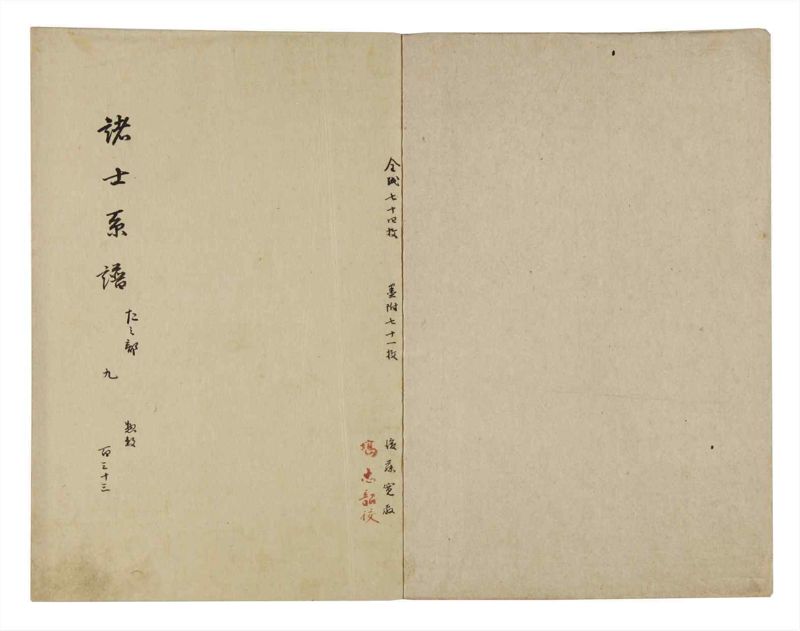 全紙七十四枚
墨附七十一枚
後藤寛敬
塙忠韶校
諸士系譜
た之部
九
惣数
百三十三